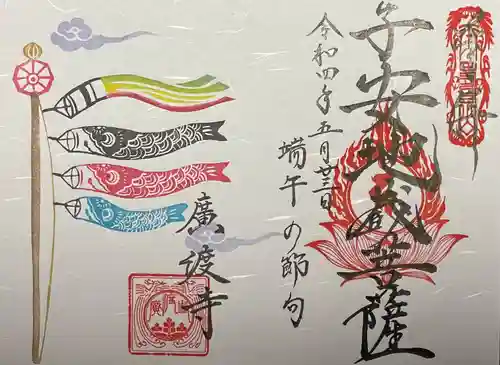 子安地蔵菩薩
令和四年五月廿三日
端午の節句
廣渡寺